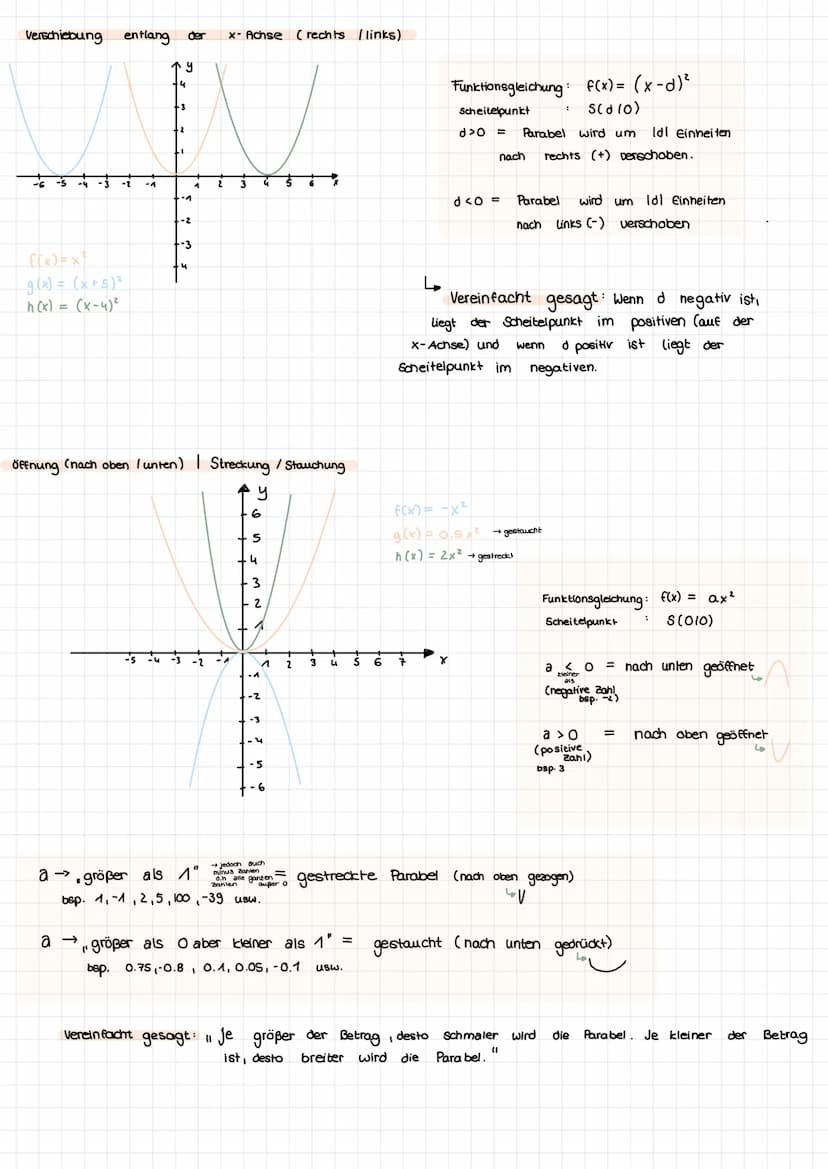 Verschiebung entlang der x-Achse (rechts / links)
y
4
3
2
1
-6 -5 -4 -3 -2 -1 1 2 3 4 5 6 x
-1
-2
-3
4
f(x)=x²
g(x) = (x+5)²
h(x) = (x-4)²
Funktionsgleichung: f(x) = (x-d)²
Scheitelpunkt : S(d/0)
d>0 = Parabel wird um |d| Einheiten
nach rechts (+) verschoben.
d<0 = Parabel wird um |d| Einheiten
nach links (-) verschoben
↳ Vereinfacht gesagt: Wenn d negativ ist,
liegt der Scheitelpunkt im positiven (auf der
x-Achse) und wenn d positiv ist liegt der
Scheitelpunkt im negativen.
Öffnung (nach oben / unten) | Streckung / Stauchung
y
6
5
4
3
2
1
-5 -4 -3 -2 -1 1 2 3 4 5 6 7 x
-1
-2
-3
-4
-5
-6
f(x) = -x²
g(x) = 0,5x² → gestaucht
h(x) = 2x² → gestreckt
Funktionsgleichung: f(x) = ax²
Scheitelpunkt : S(0/0)
a < 0 = nach unten geöffnet
kleiner
als
(negative Zahl
bsp. -2)
a > 0 = nach oben geöffnet
(positive
Zahl)
bsp. 3
a → „größer als 1" → jedoch auch minus Zahlen d.h alle ganzen Zahlen außer 0 = gestreckte Parabel (nach oben gezogen)
bsp. 1, -1, 2, 5, 100, -39 usw.
a → „größer als 0 aber kleiner als 1" = gestaucht (nach unten gedrückt)
bsp. 0.75, -0.8, 0.1, 0.05, -0.1 usw.
Vereinfacht gesagt: „Je größer der Betrag, desto schmaler wird die Parabel. Je kleiner der Betrag
ist, desto breiter wird die Parabel."